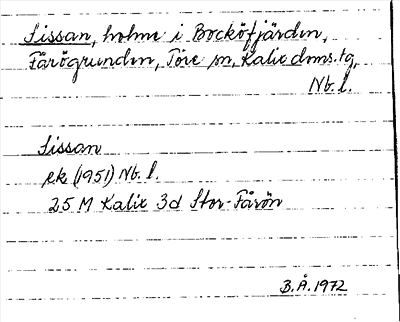 Sissan, holme i Bocköfjärden,
Fårögrunden, Töre sn, Kalix dms.tg,
Nb. l.
Sissan
ek (1951) Nb. l.
25 M Kalix 3d Stor-Fårön
B.Å. 1972